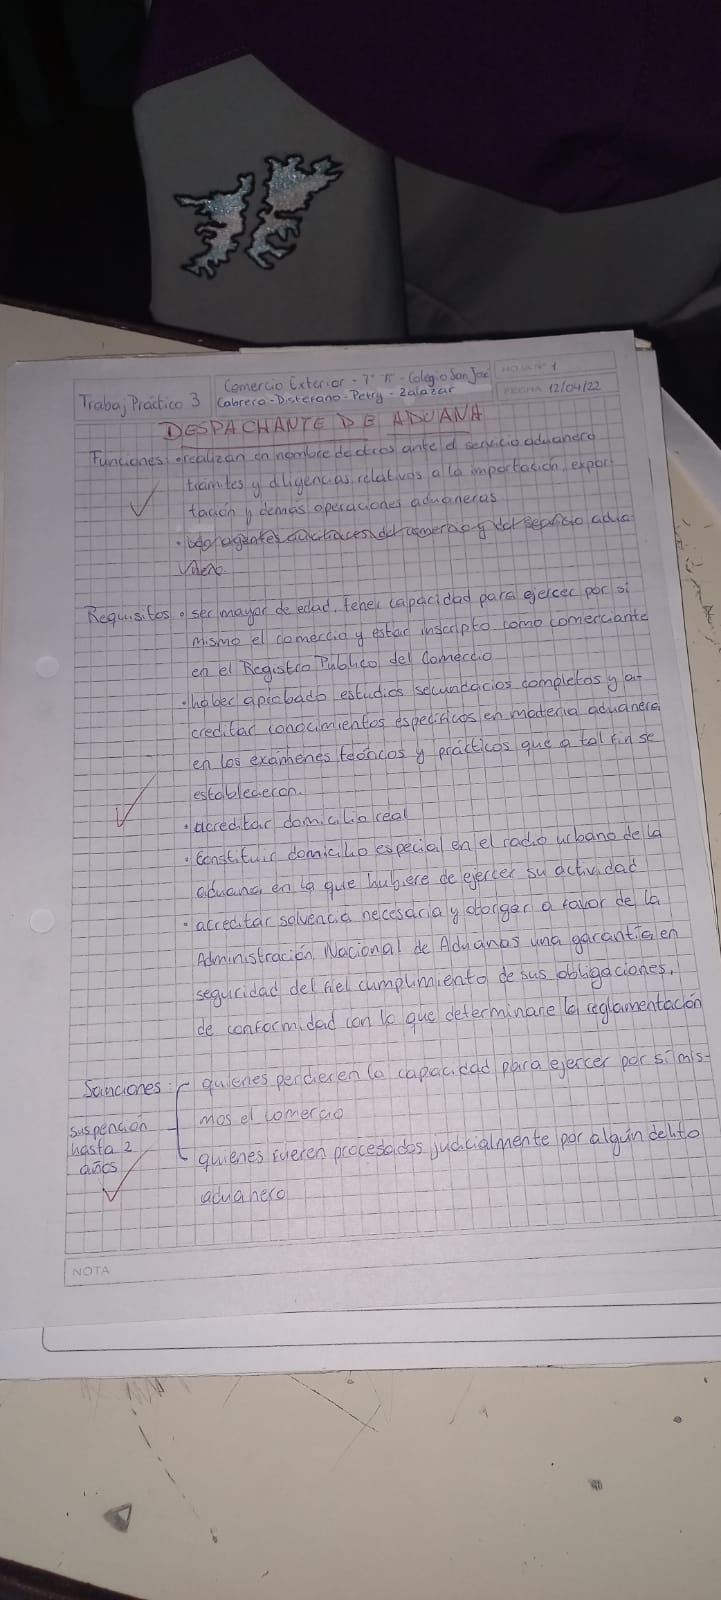 Trabaj Práctico 3
Comercio Exterior - 7° "A" - Colegio San José
Cabrera - Disterano - Petry - Zalazar
HOJA Nº 1
FECHA 12/04/22
DESPACHANTE DE ADUANA
Funciones: • realizan en nombre de otros ante el servicio aduanero
trámites y diligencias relativos a la importación, expor-
tación y demás operaciones aduaneras
• agentes auxiliares del comercio y del servicio adua
nero
Requisitos • ser mayor de edad, tener capacidad para ejercer por si
mismo el comercio y estar inscripto como comerciante
en el Registro Publico del Comercio
• haber aprobado estudios secundarios completos y a-
creditar conocimientos especificos en materia aduanera
en los exámenes teóricos y prácticos que a tal fin se
establecieron.
• acreditar domicilio real
• constituir domicilio especial en el radio urbano de la
aduana en la que hubiere de ejercer su actividad
• acreditar solvencia necesaria y otorgar a favor de la
Administración Nacional de Aduanas una garantía en
seguridad del fiel cumplimiento de sus obligaciones,
de conformidad con lo que determinare la reglamentación
Sanciones: quienes perdieren la capacidad para ejercer por si mis-
mos el comercio
suspención
hasta 2
años
quienes fueren procesados judicialmente por algún delito
aduanero
NOTA